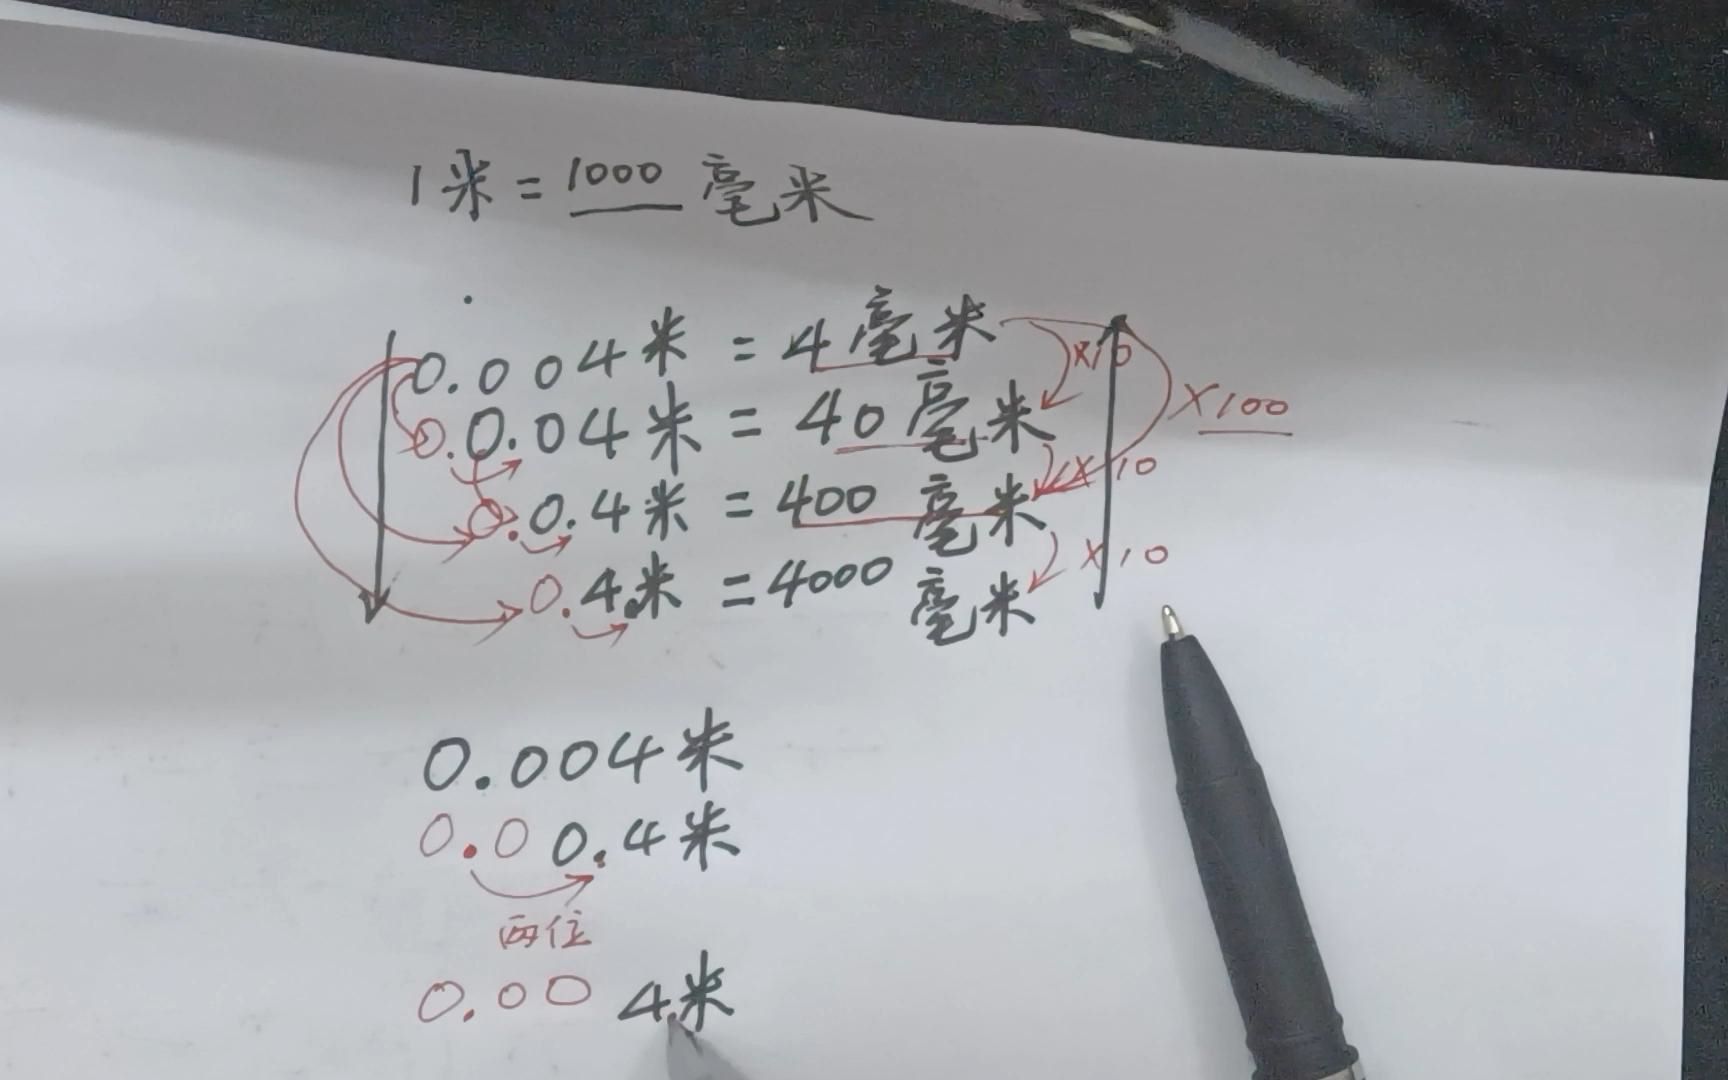 1米=1000毫米
0.004米=4毫米
×10
0.0.04米=40毫米
×100
×10
0.0.4米=400毫米
×10
0.4.米=4000毫米
0.004米
0.00.4米
两位
0.004.米